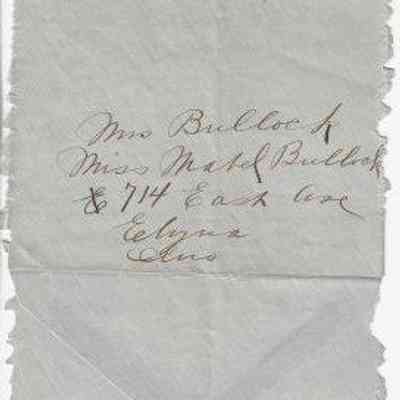 Mrs Bullock
Miss Mabel Bullock
714 East Ave
Elyria